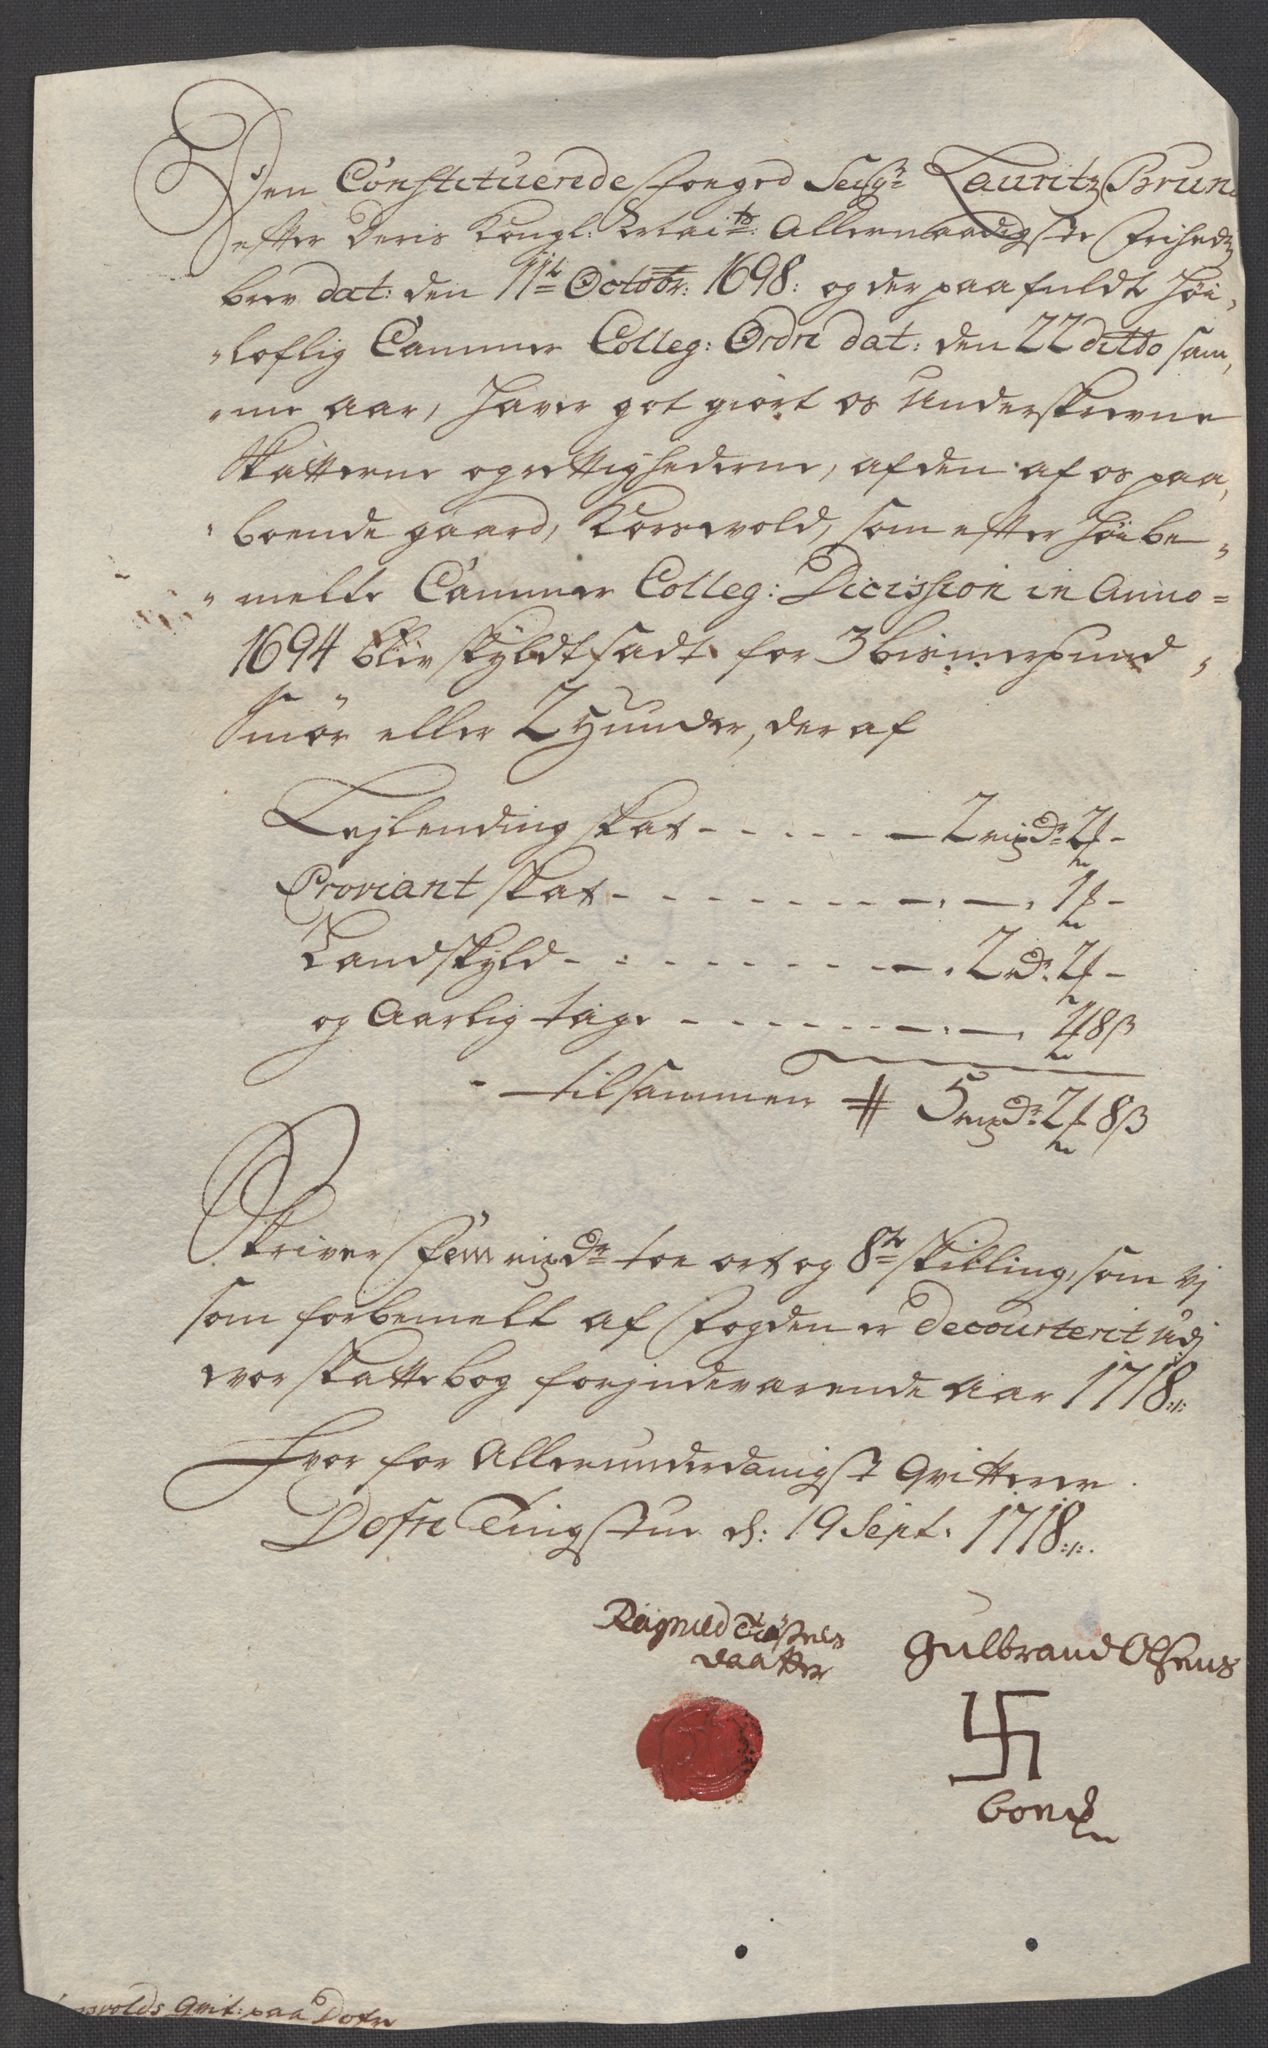 Den Constituerede Foeged Seigr Lauritz Brun
efter Deris Kongl: Maits: Allernaadigste Friheds
brev dat: den 11te Octobr: 1698: og der paa fuldte Høi,
"loflig Cammer Colleg: Ordre dat: den 22 ditto sam,
"me aar, hafver got giort os Underskrevne
Skatterne og rettighederne, af den af os paa,
"boende gaard, Korsvold, som efter høibe,,
"melte Cammer Colleg: Dicission in Anno=
1694 blev skyldt sadt for 3 bismerpund,
Smør eller 2 Hunder, der af
Lejlending skat - - - - - 2 rixdr 2 ₰ -
Proviant skat - - - - - - - - - 1 ₰ -
Landskyld - - - - - - - - - 2 rdr 2 ₰ -
og Aarlig tage - - - - - - - - 2 ₰ 8 β
- tilsammen # 5 rixdr 2 ₰ 8 β
Skriver Fem rixdr toe ort og 8te skilling, som vj
som forbemelt af Fogden er decourterit udj
vor skattebog for indeværende Aar 1718:/:
Hvor for Allerunderdanigst Qvitterer.
Dofre Tingstue d: 19 Sept: 1718:/:
Ragnild Tostens
daatter
Gulbrand Olsens
bomerke
Qvit: paa Dofre